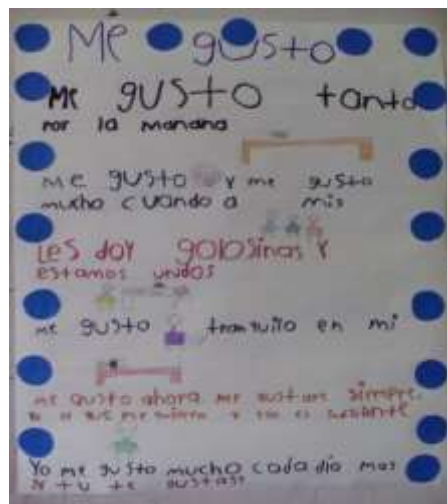 Me gusto
Me gusto tanto
por la manana
me gusto y me gusto
mucho cuando a mis
Les doy golosinas y
estamos unidos
me gusto tranquilo en mi
me gusto ahora me gustare siempre.
Yo me gusto mucho cada dia mas
y tu te gustas?